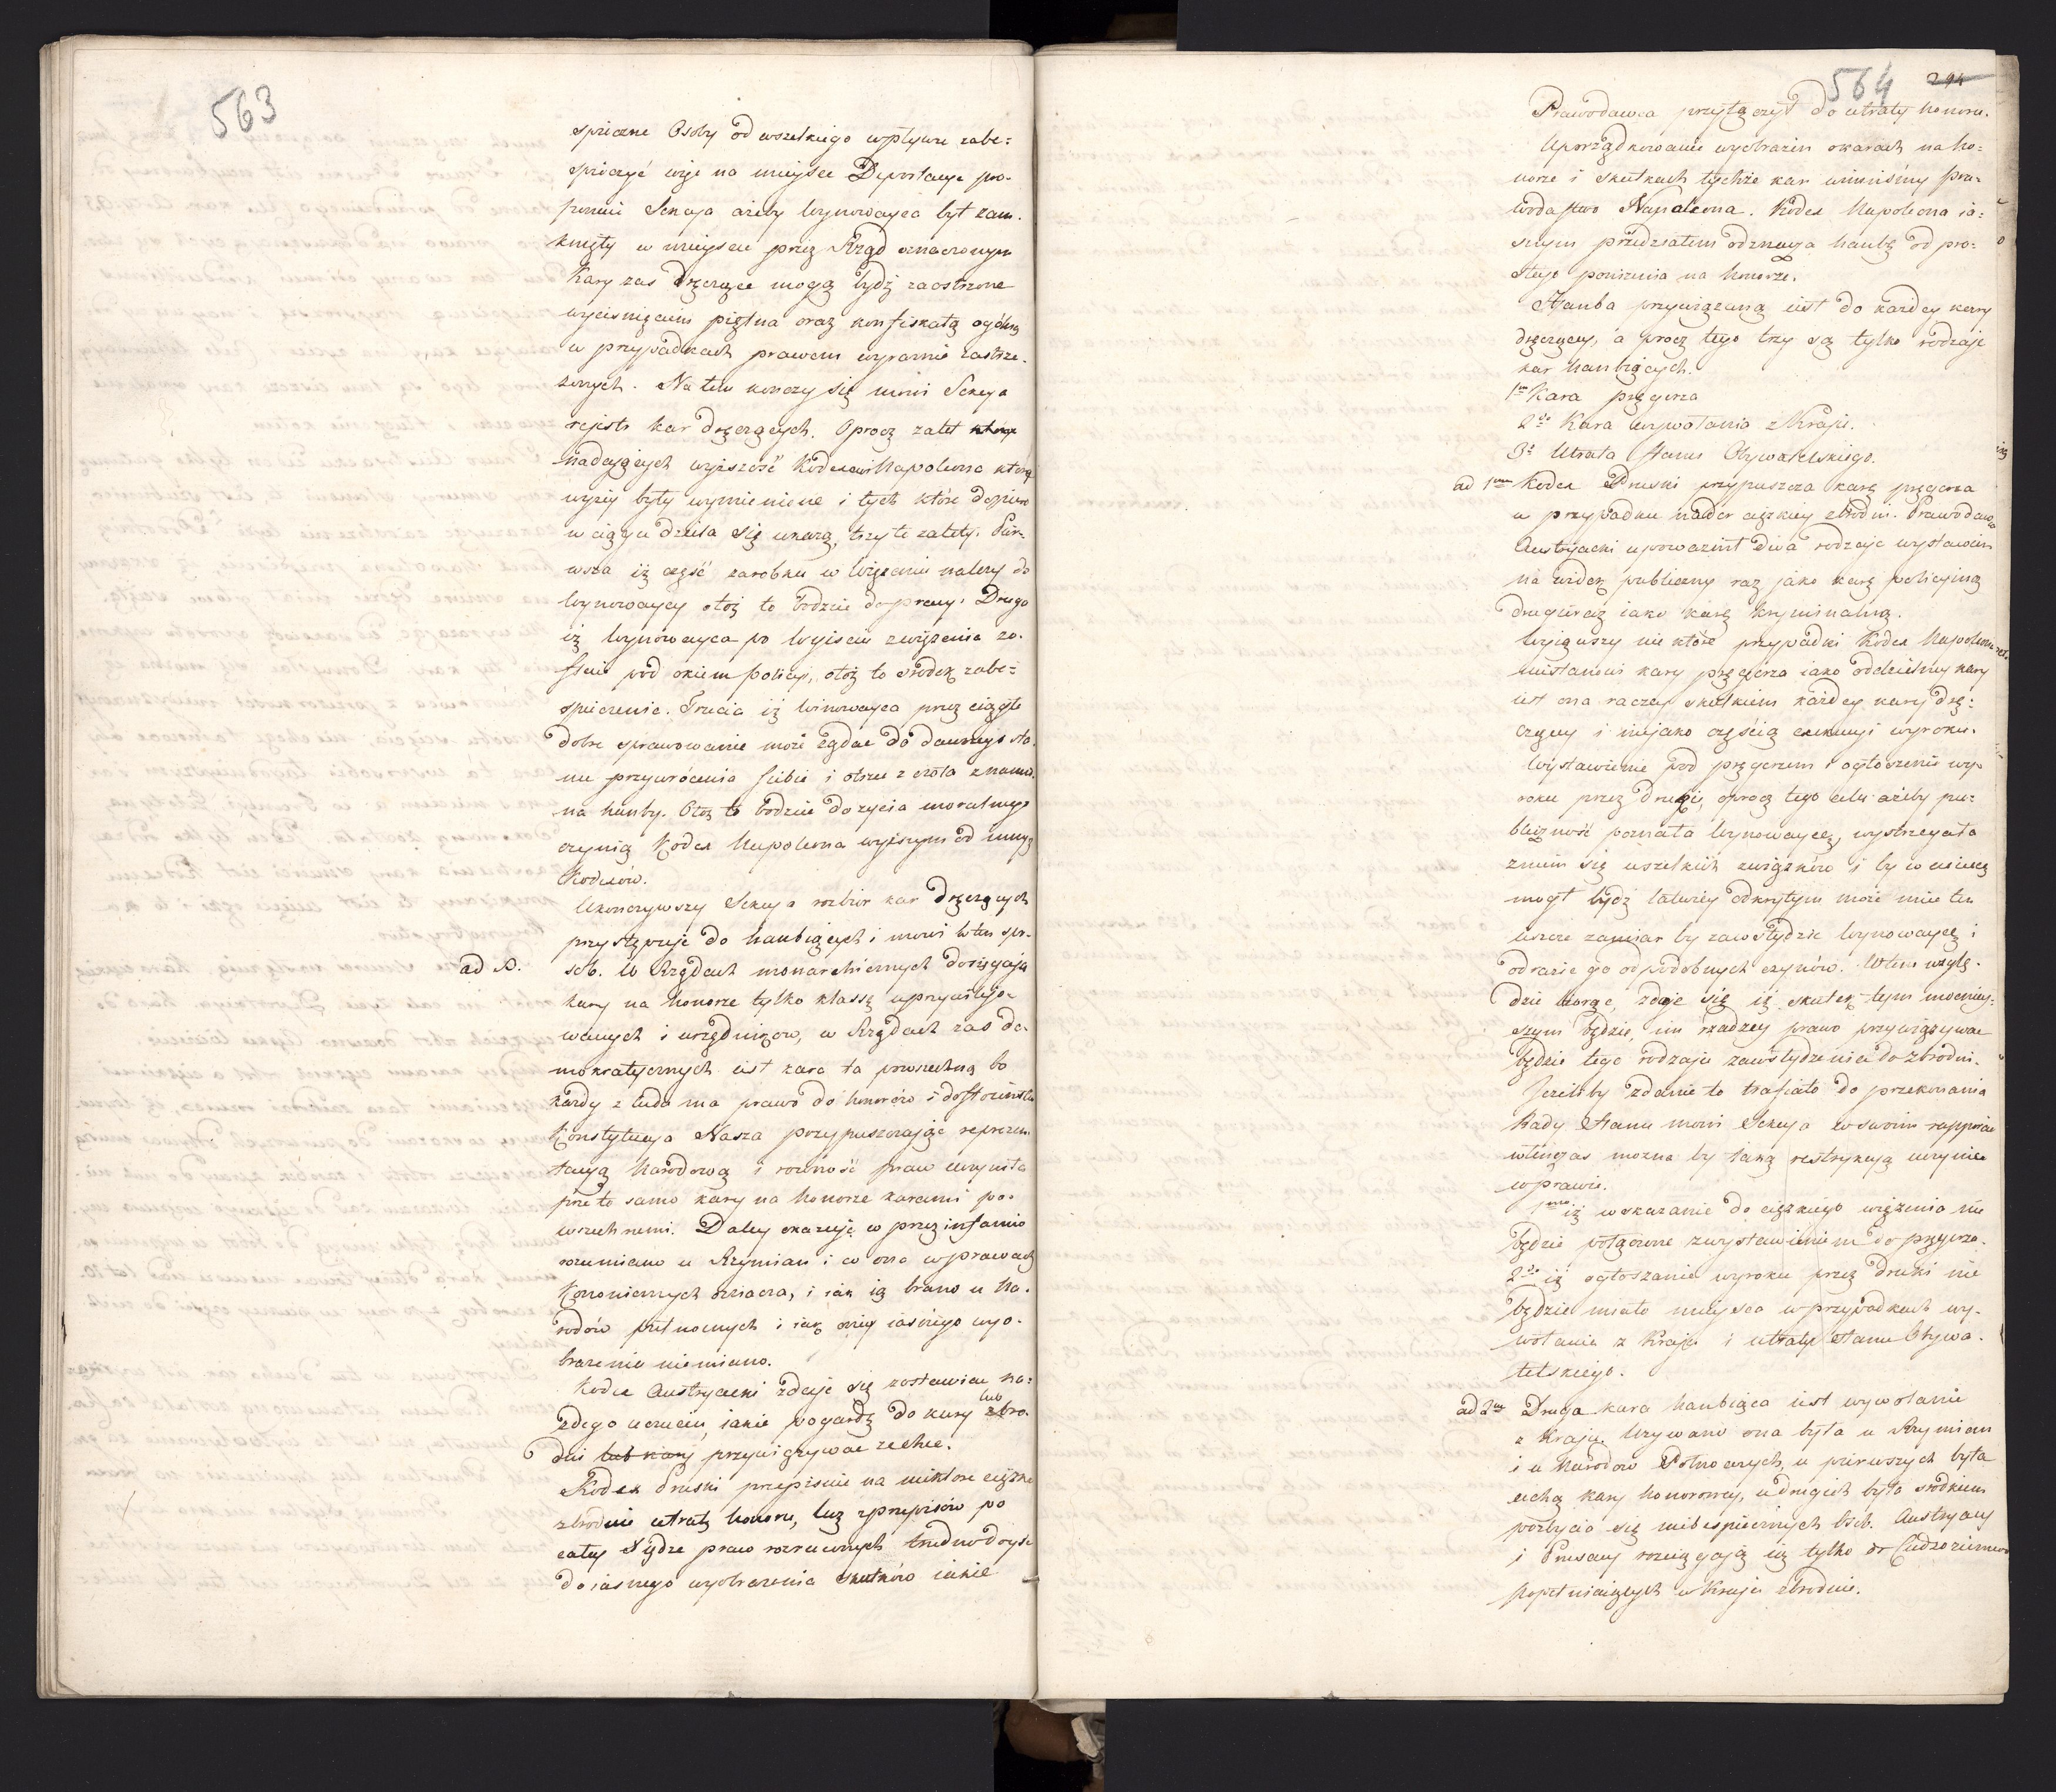 563
spieczne Osoby od wszelkiego wpływu zabe=
spieczyć więc na mieysce Deportacyi pro-
ponuie Sekcya ażeby Wynowayca był zam-
knięty w mieyscu przez Rząd oznaczonym
Kary zas dręczące mogą bydź zaostrzone
wyciśnięciem piętna oraz konfiskatą ogólną
w przypadkach prawem wyraźnie zastrze-
żonych. Na tem konczy się mówi Sekcya
rejestr kar dręczących. Oprocz zalet
nadaiących wyższość Kodexowi Napoleona które
wyżey były wymienione i tych które dopiero
w ciągu dzieła się ukażą, trzy te zalety. Pier-
wsza iż część zarobku w Więzieniu należy do
Wynowaycy otóż to bodziec do pracy. Druga
iż Wynowayca po Wyiściu z więzienia zo-
staie pod okiem policyi, otóż to srodek zabe=
spieczenia. Trzecia iż Winowayca przez ciągłe
dobre sprawowanie może żądać do dawnego sta-
nu przywrócenia siebie i otrze z czoła znamie-
na hańby. Otoż to bodziec do życia moralnego
czynią Kodex Napoleona wyższym od innych
Kodexów.
Ukonczywszy Sekcya rozbiór kar dręczących
przystępuje do hanbiących i mowi w ten spo-
ad B. sób. W Rządach monarchicznych dosięgaią
kary na honorze tylko klassę uprzywilejo-
wanych i urzędników, w Rządach zas de-
mokratycznych iest kara ta powszechną bo
każdy z ludu ma prawo do honorów i dostoieństw
Konstytucya Nasza przypuszczając reprezen-
tacyą Narodową i rowność praw uczyniła
prze to samo kary na honorze karami po-
wszechnemi. Daley okazuje co przez infamią
rozumiano u Rzymian i co ona w prawach
Kanonicznych oznacza, i iak ią brano u Na-
rodów północnych i iak oniey iaśniego wyo-
brażenia niemiano.
Kodex Austryacki zdaje się zostawiać ka-
żdego uczuciu, iakie pogardę do kary lub zbro-
dni lub kary przywiązywać zechce.
Kodex Pruski przepisuie na niektóre ciężkie
zbrodnie utratę honoru, lecz z przepisów po
całey Xiędze praw rozrzuconych trudno doyść
do iasnego wyobrażenia skutków iakie
564 294
Prawodawca przyłączył do utraty honoru.
Uporządkowanie wyobrażeń o karach na ho-
norze i skutkach tychże kar winniśmy pra-
wodastwo Napoleona. Kodex Napoleona ia-
snym przedziałem odznacza hańbę od pro-
stego poniżenia na honorze.
Hanba przywiązaną iest do każdey kary
dręczącey, a procz tego trzy są tylko rodzaje
kar hanbiących.
1mo Kara pręgierza
2do Kara Wywołania z Kraju.
3o Utrata stanu Obywatelskiego.
ad 1mum Kodex Pruski przypuszcza karę pręgierza
w przypadku nader ciężkiey zbrodni. Prawodawca
Austryacki upoważnił dwa rodzaje wystawień
na widok publiczny raz jako karę policyiną
drugi raz iako karę kryminalną.
Wyiąwszy nie które przypadki Kodex Napoleona
niestanowi kary pręgierza iako oddzielney kary
iest ona raczey skutkiem każdey kary drę-
czącey i niejako częścią exekucyi wyroku.
Wystawienie pod pręgierzem i ogłoszenie wy-
roku przez druki, oprocz tego celu ażeby pu-
bliczność poznała Wynowaycę, wystrzegała
znim się wszelkich związków i by w ucieczce
mogł bydź łatwiey odkrytym może miec ten
ieszcze zamiar by zawstydzic Wynowaycę i
odrazic go od podobnych czynów. W tem wzglę-
dzie biorąc, zdaje się iż skutek tym mocniey-
szym będzie, im rzadzey prawo przywiązywac
będzie tego rodzaju zawstydzenia do zbrodni.
Jeżeliby zdanie to trafiało do przekonania
Rady Stanu mowi Sekcya w swoim rapporcie
wtenczas można by taką restrykcyą uczynic
w prawie.
1mo iż wskazanie do ciężkiego więzienia nie
będzie połączone z wystawieniem do pręgierza.
2do iż ogłoszenie wyroku przez druki nie
będzie miało mieysca w przypadkach wy-
wołania z Kraju i utraty stanu Obywa-
telskiego.
ad 2um Druga kara hanbiąca iest wywołanie
z Kraju. Używano ona była u Rzymian
i u Narodow Północnych, u pierwszych była
cechą kary honorowey, u drugich była srodkiem
pozbycia się niebespiecznych osób. Austryacy
i Prusacy rozciągaią ią tylko do Cudzoziemców
popełniaiących w Kraju zbrodnie.